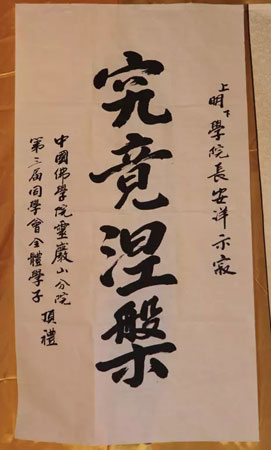 上明下學院長安詳示寂
究竟涅槃
中國佛學院靈巖山分院
第三届同學會全體學子 頂禮